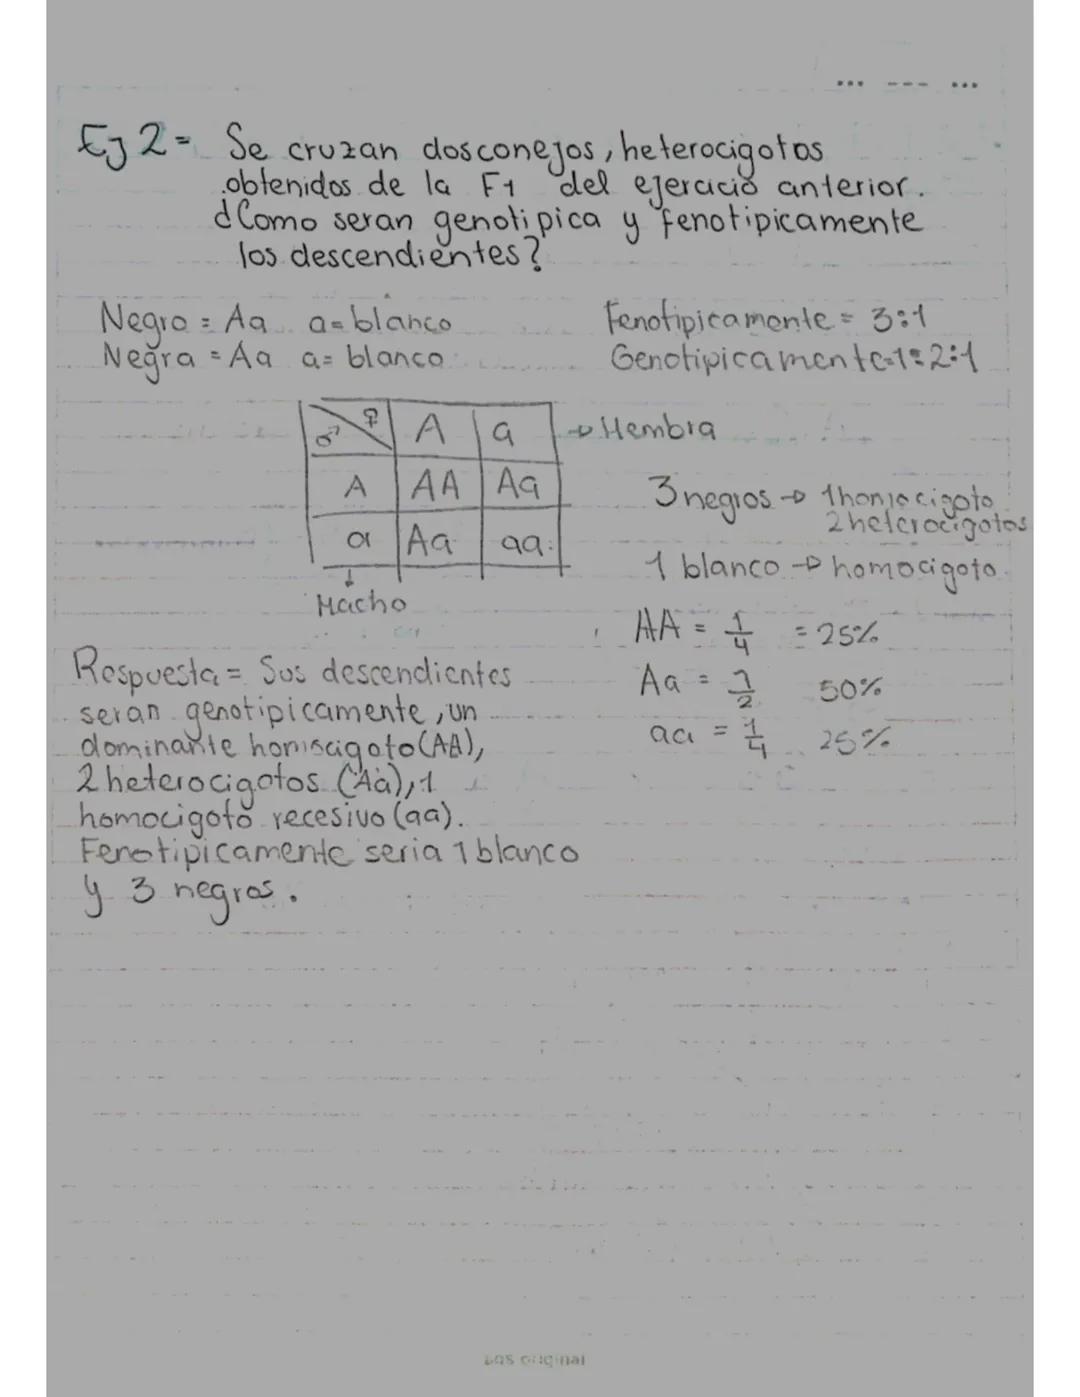 Ej 2= Se cruzan dos conejos, heterocigotos
obtenidos de la F1 del ejercicio anterior.
¿Como seran genotipica y fenotipicamente
los descendientes?
Negro = Aa a=blanco
Negra = Aa a= blanco
Fenotipicamente = 3:1
Genotipicamente=1:2:1
♂ ♀ A a → Hembra
A AA Aa
a Aa aa
Macho
3 negros → 1 homocigoto
2 heterocigotos
1 blanco → homocigoto
AA = 1/4 = 25%
Aa = 1/2 50%
aa = 1/4 25%
Respuesta = Sus descendientes
seran genotipicamente, un
dominante homocigoto (AA),
2 heterocigotos (Aa), 1
homocigoto recesivo (aa).
Fenotipicamente seria 1 blanco
y 3 negros.
original